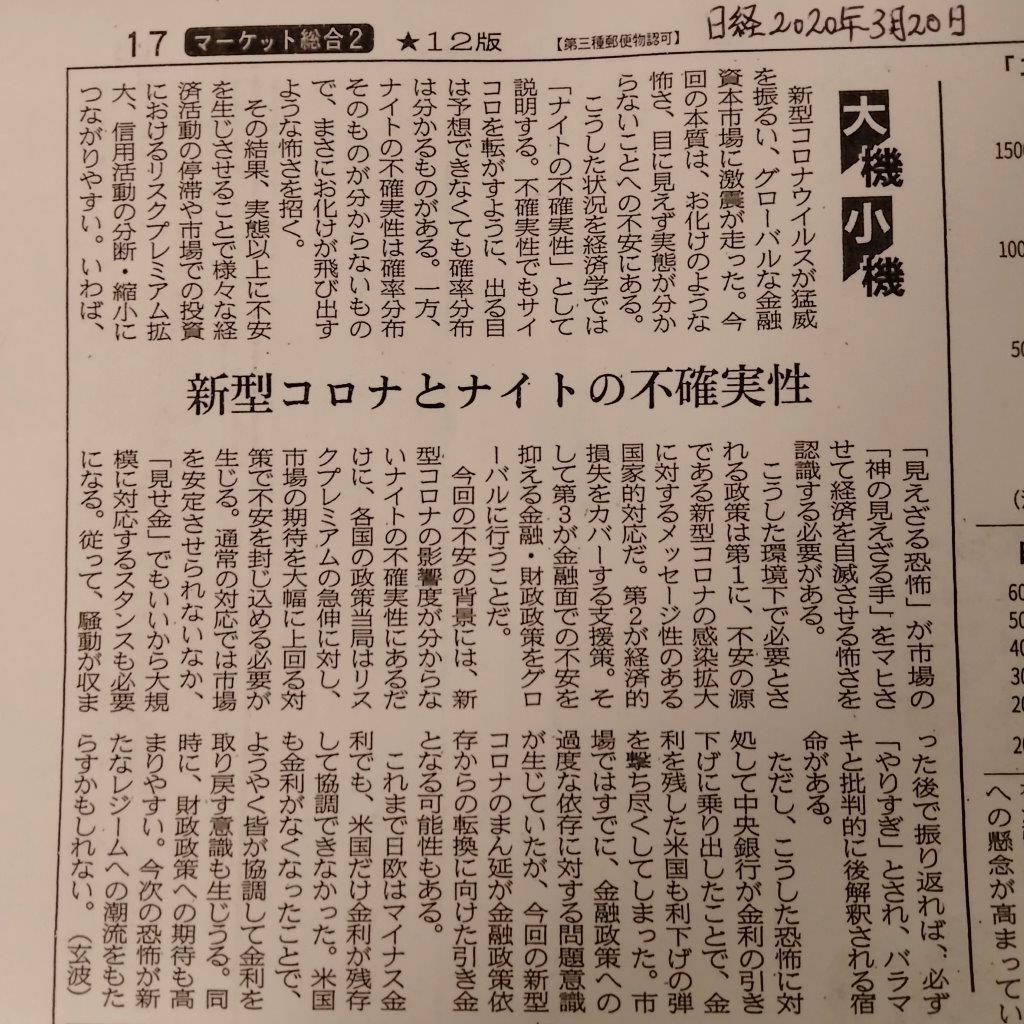 17 マーケット総合2 ★12版 【第三種郵便物認可】
日経2020年3月20日
大機小機
新型コロナウイルスが猛威
を振るい、グローバルな金融
資本市場に激震が走った。今
回の本質は、お化けのような
怖さ、目に見えず実態が分か
らないことへの不安にある。
こうした状況を経済学では
「ナイトの不確実性」として
説明する。不確実性でもサイ
コロを転がすように、出る目
は予想できなくても確率分布
は分かるものがある。一方、
ナイトの不確実性は確率分布
そのものが分からないもの
で、まさにお化けが飛び出す
ような怖さを招く。
その結果、実態以上に不安
を生じさせることで様々な経
済活動の停滞や市場での投資
におけるリスクプレミアム拡
大、信用活動の分断・縮小に
つながりやすい。いわば、
新型コロナとナイトの不確実性
「見えざる恐怖」が市場の
「神の見えざる手」をマヒさ
せて経済を自滅させる怖さを
認識する必要がある。
こうした環境下で必要とさ
れる政策は第1に、不安の源
である新型コロナの感染拡大
に対するメッセージ性のある
国家的対応だ。第2が経済的
損失をカバーする支援策。そ
して第3が金融面での不安を
抑える金融・財政政策をグロ
ーバルに行うことだ。
今回の不安の背景には、新
型コロナの影響度が分からな
いナイトの不確実性にあるだ
けに、各国の政策当局はリス
クプレミアムの急伸に対し、
市場の期待を大幅に上回る対
策で不安を封じ込める必要が
生じる。通常の対応では市場
を安定させられないなか、
「見せ金」でもいいから大規
模に対応するスタンスも必要
になる。従って、騒動が収ま
った後で振り返れば、必ず
「やりすぎ」とされ、バラマ
キと批判的に後解釈される宿
命がある。
ただし、こうした恐怖に対
処して中央銀行が金利の引き
下げに乗り出したことで、金
利を残した米国も利下げの弾
を撃ち尽くしてしまった。市
場ではすでに、金融政策への
過度な依存に対する問題意識
が生じていたが、今回の新型
コロナのまん延が金融政策依
存からの転換に向けた引き金
となる可能性もある。
これまで日欧はマイナス金
利でも、米国だけ金利が残存
して協調できなかった。米国
も金利がなくなったことで、
ようやく皆が協調して金利を
取り戻す意識も生じうる。同
時に、財政政策への期待も高
まりやすい。今次の恐怖が新
たなレジームへの潮流をもた
らすかもしれない。 （玄波）
1500
への懸念が高まってい